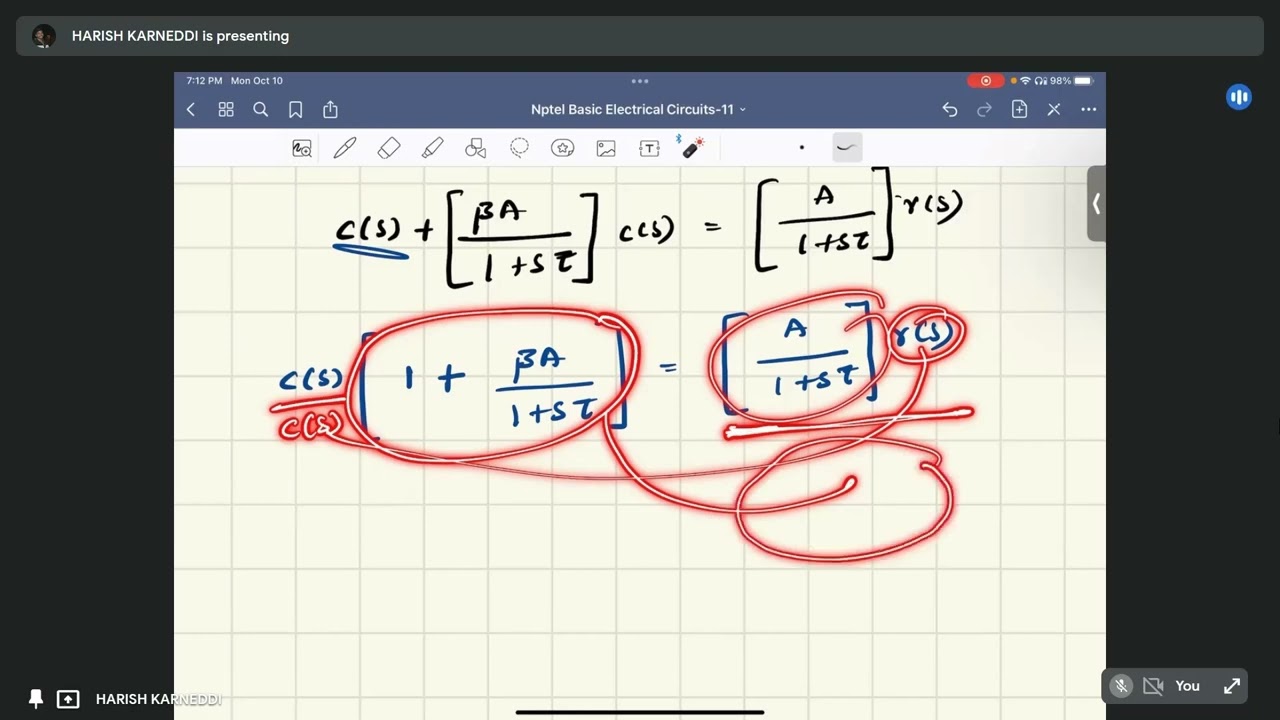 HARISH KARNEDDI is presenting
7:12 PM Mon Oct 10
98%
Nptel Basic Electrical Circuits-11
c(s) + [βA / 1+sτ] c(s) = [A / 1+sτ] r(s)
c(s) [1 + βA / 1+sτ] = [A / 1+sτ] r(s)
c(s)
HARISH KARNEDDI
You